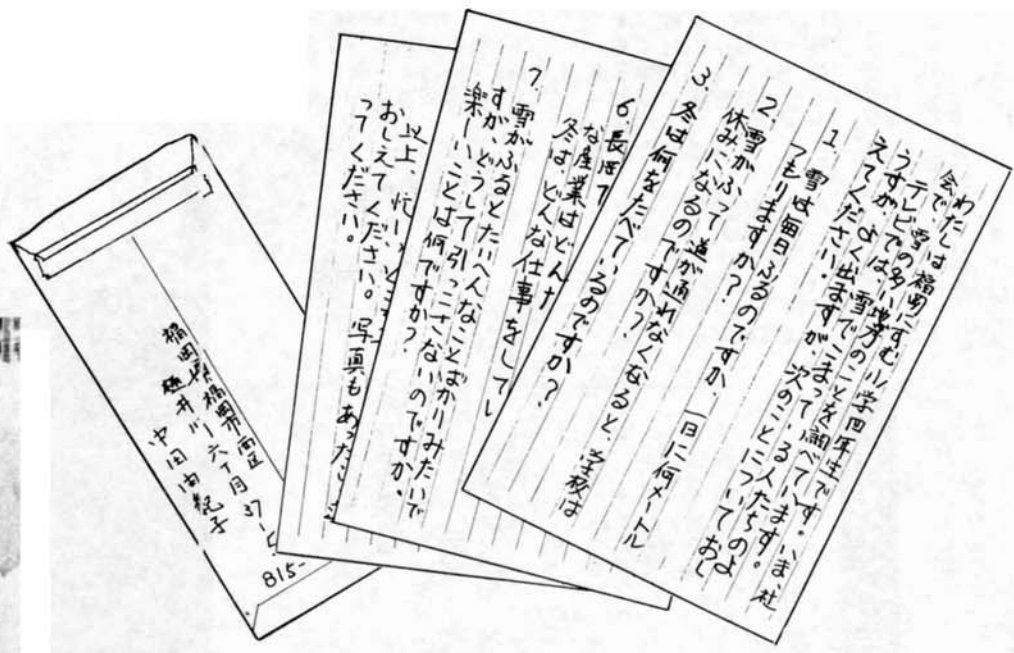 わたしは福岡にすむ小学四年生です。いま、社
会で、雪の多い地方のことを調べています。
テレビでは、雪でこまっている人たちのよ
うすが、よく出ますが、次のことについておし
えてください。
1. 雪は毎日ふるのですか、一日に何メートル
つもりますか？
2. 雪がふって道が通れなくなると、学校は
休みになるのですか？
3. 冬は何をたべているのですか？
6. 長岡
な産業はどん
冬は、どんな仕事をしてい
7. 雪がふるとたいへんなことばかりみたいで
すが、どうして引っこさないのですか。
楽しいことは何ですか？
以上、忙しい
おしえてください。写真もあったら
ってください。
福岡県福岡市南区
桧井川六丁目37-
中田由紀子
815-